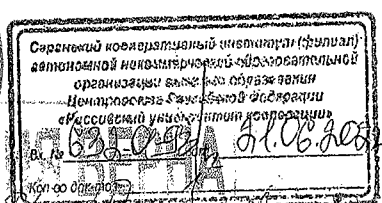 Саранский кооперативный институт (филиал)
автономной некоммерческой образовательной
организации высшего образования
Центросоюза Российской Федерации
«Российский университет кооперации»
Вх. № 21.06.202
Кол-во док-тов
ВЕРНА